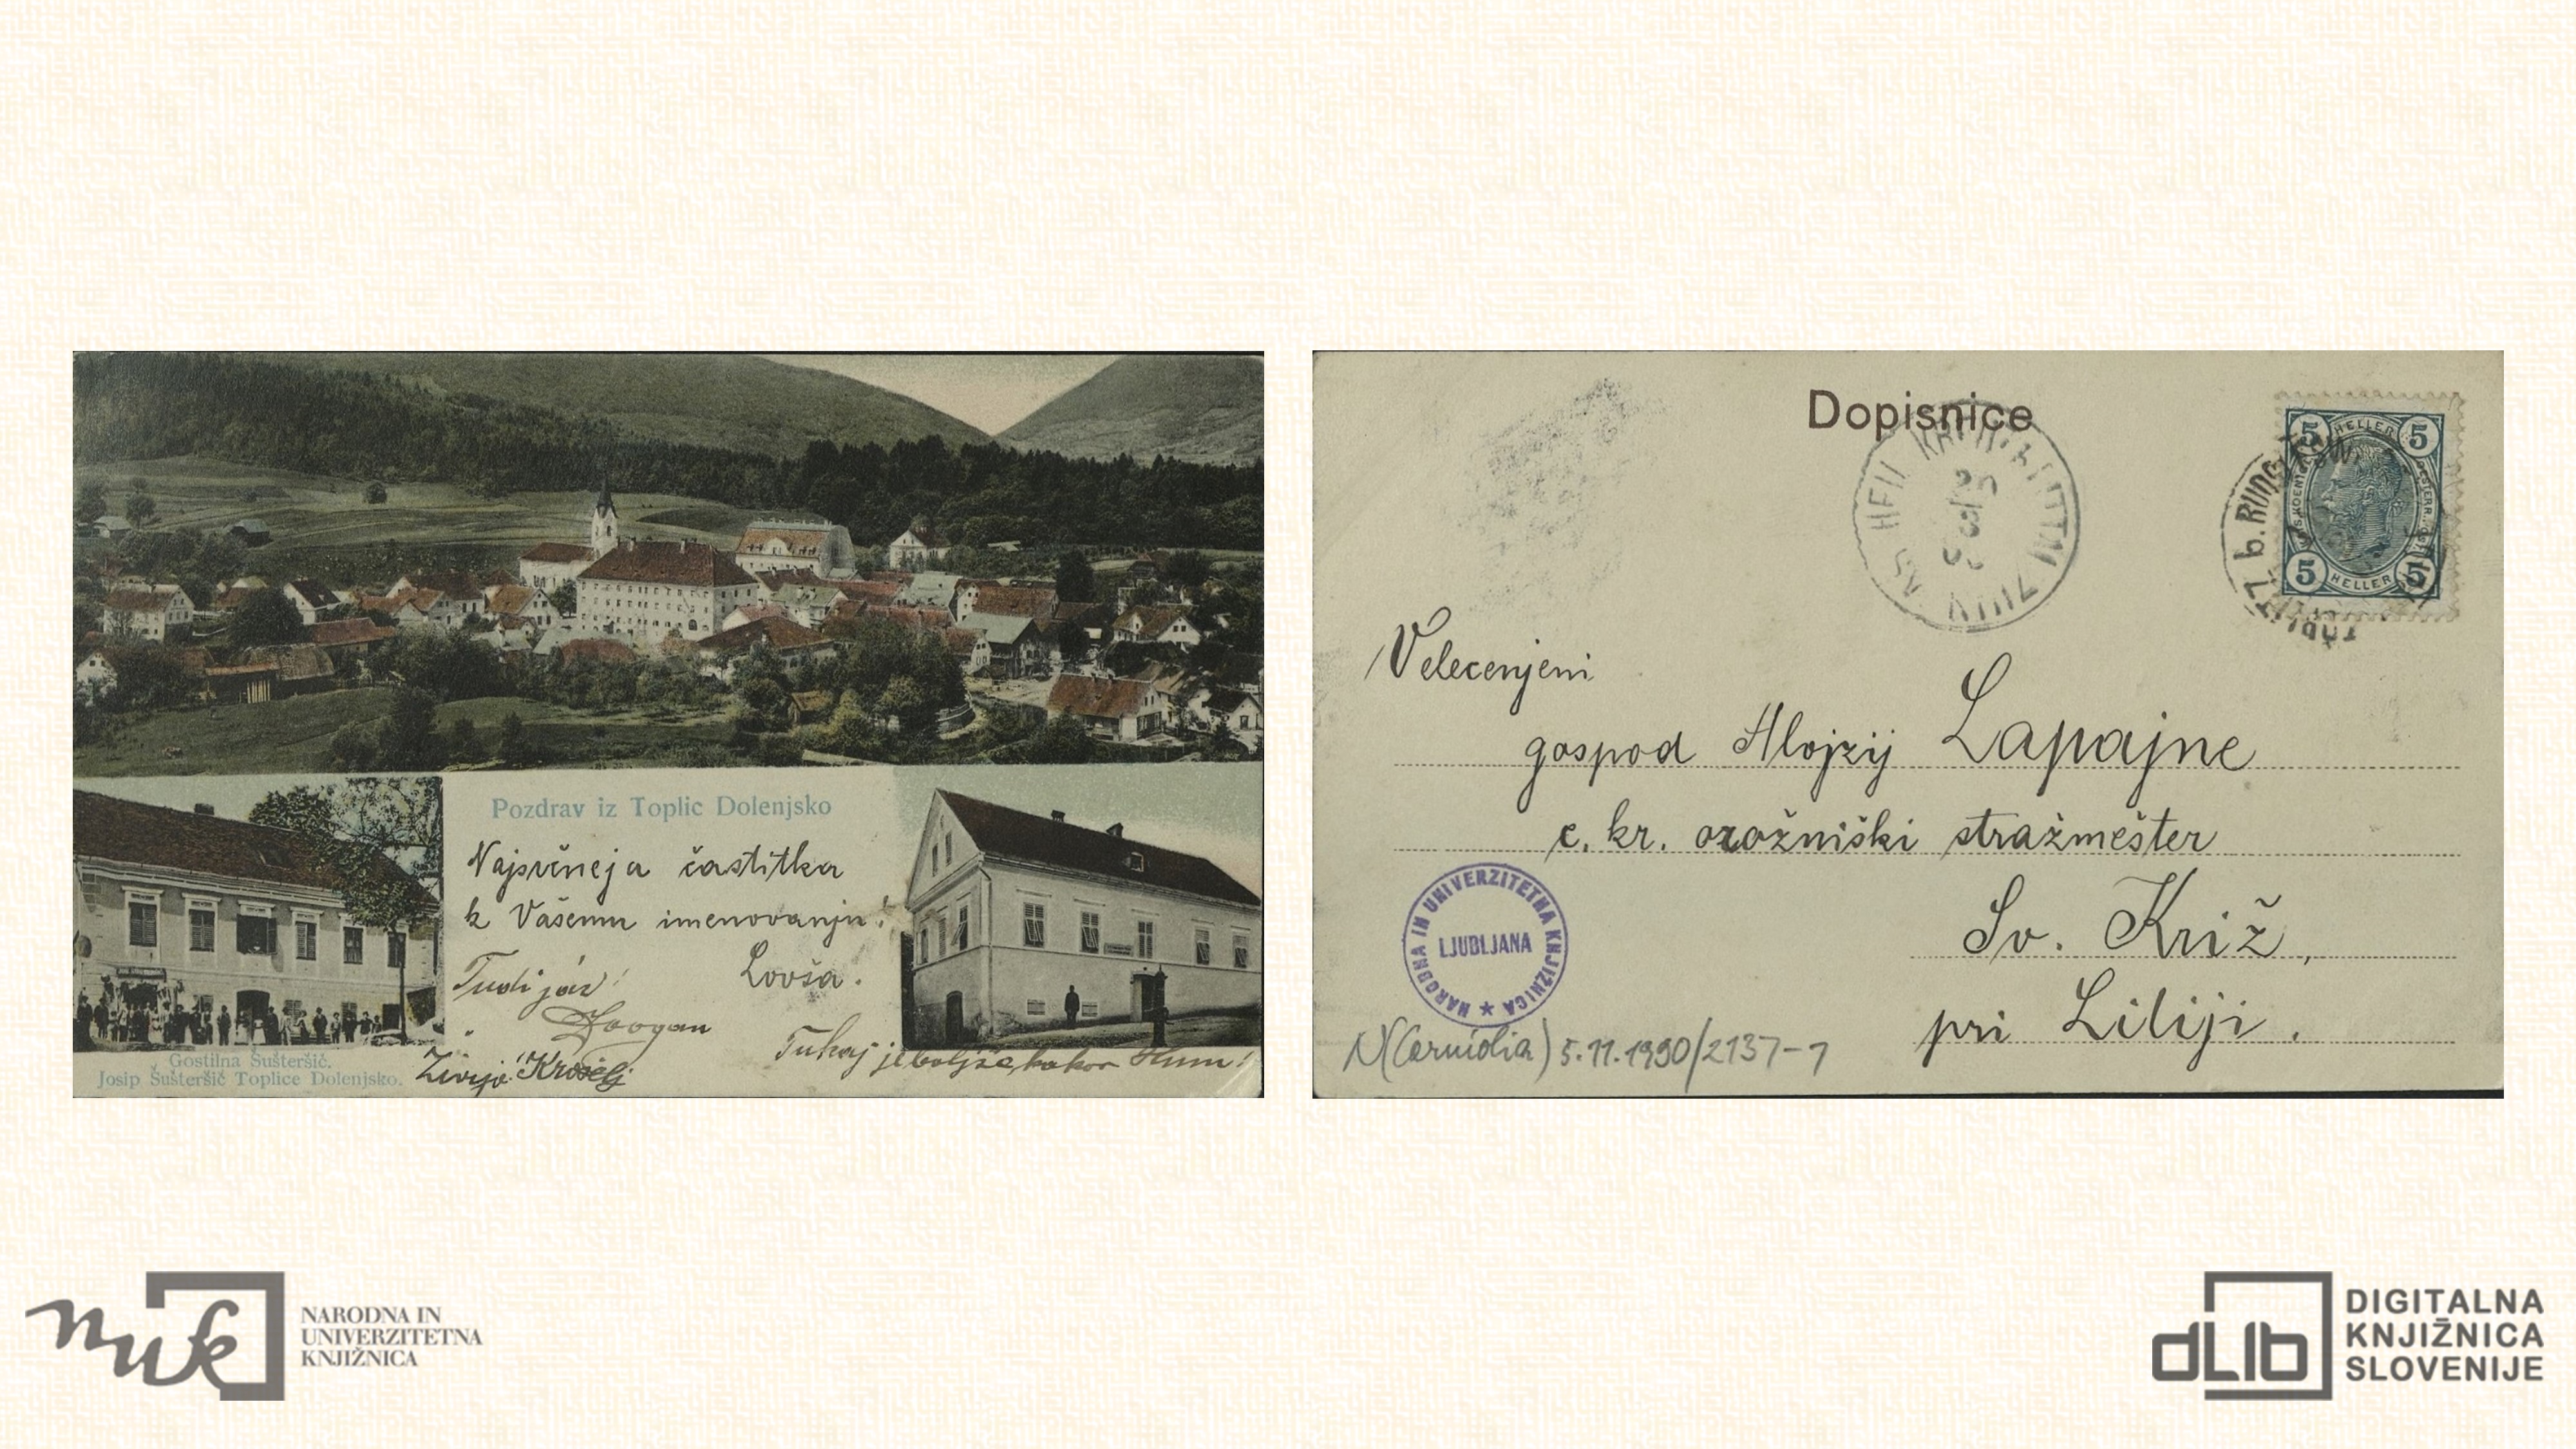 Pozdrav iz Toplic Dolenjsko
Najsrčneja častitka
k Vašemu imenovanju!
Lovša.
Tudi jaz!
Živijo! Krošelj
Tukaj je boljše, kakor Hum!
Gostilna Šušteršič.
Josip Šušteršič Toplice Dolenjsko.
Dopisnice
5 HELLER 5
5 HELLER 5
b. RUDO
Velecenjeni
gospod Alojzij Lapajne
c. kr. orožniški stražmešter
Sv. Križ,
pri Litiji.
NARODNA IN UNIVERZITETNA KNJIŽNICA
LJUBLJANA
N(Carniolia) 5.11.1990/2137-7
nuk
NARODNA IN
UNIVERZITETNA
KNJIŽNICA
dLib
DIGITALNA
KNJIŽNICA
SLOVENIJE